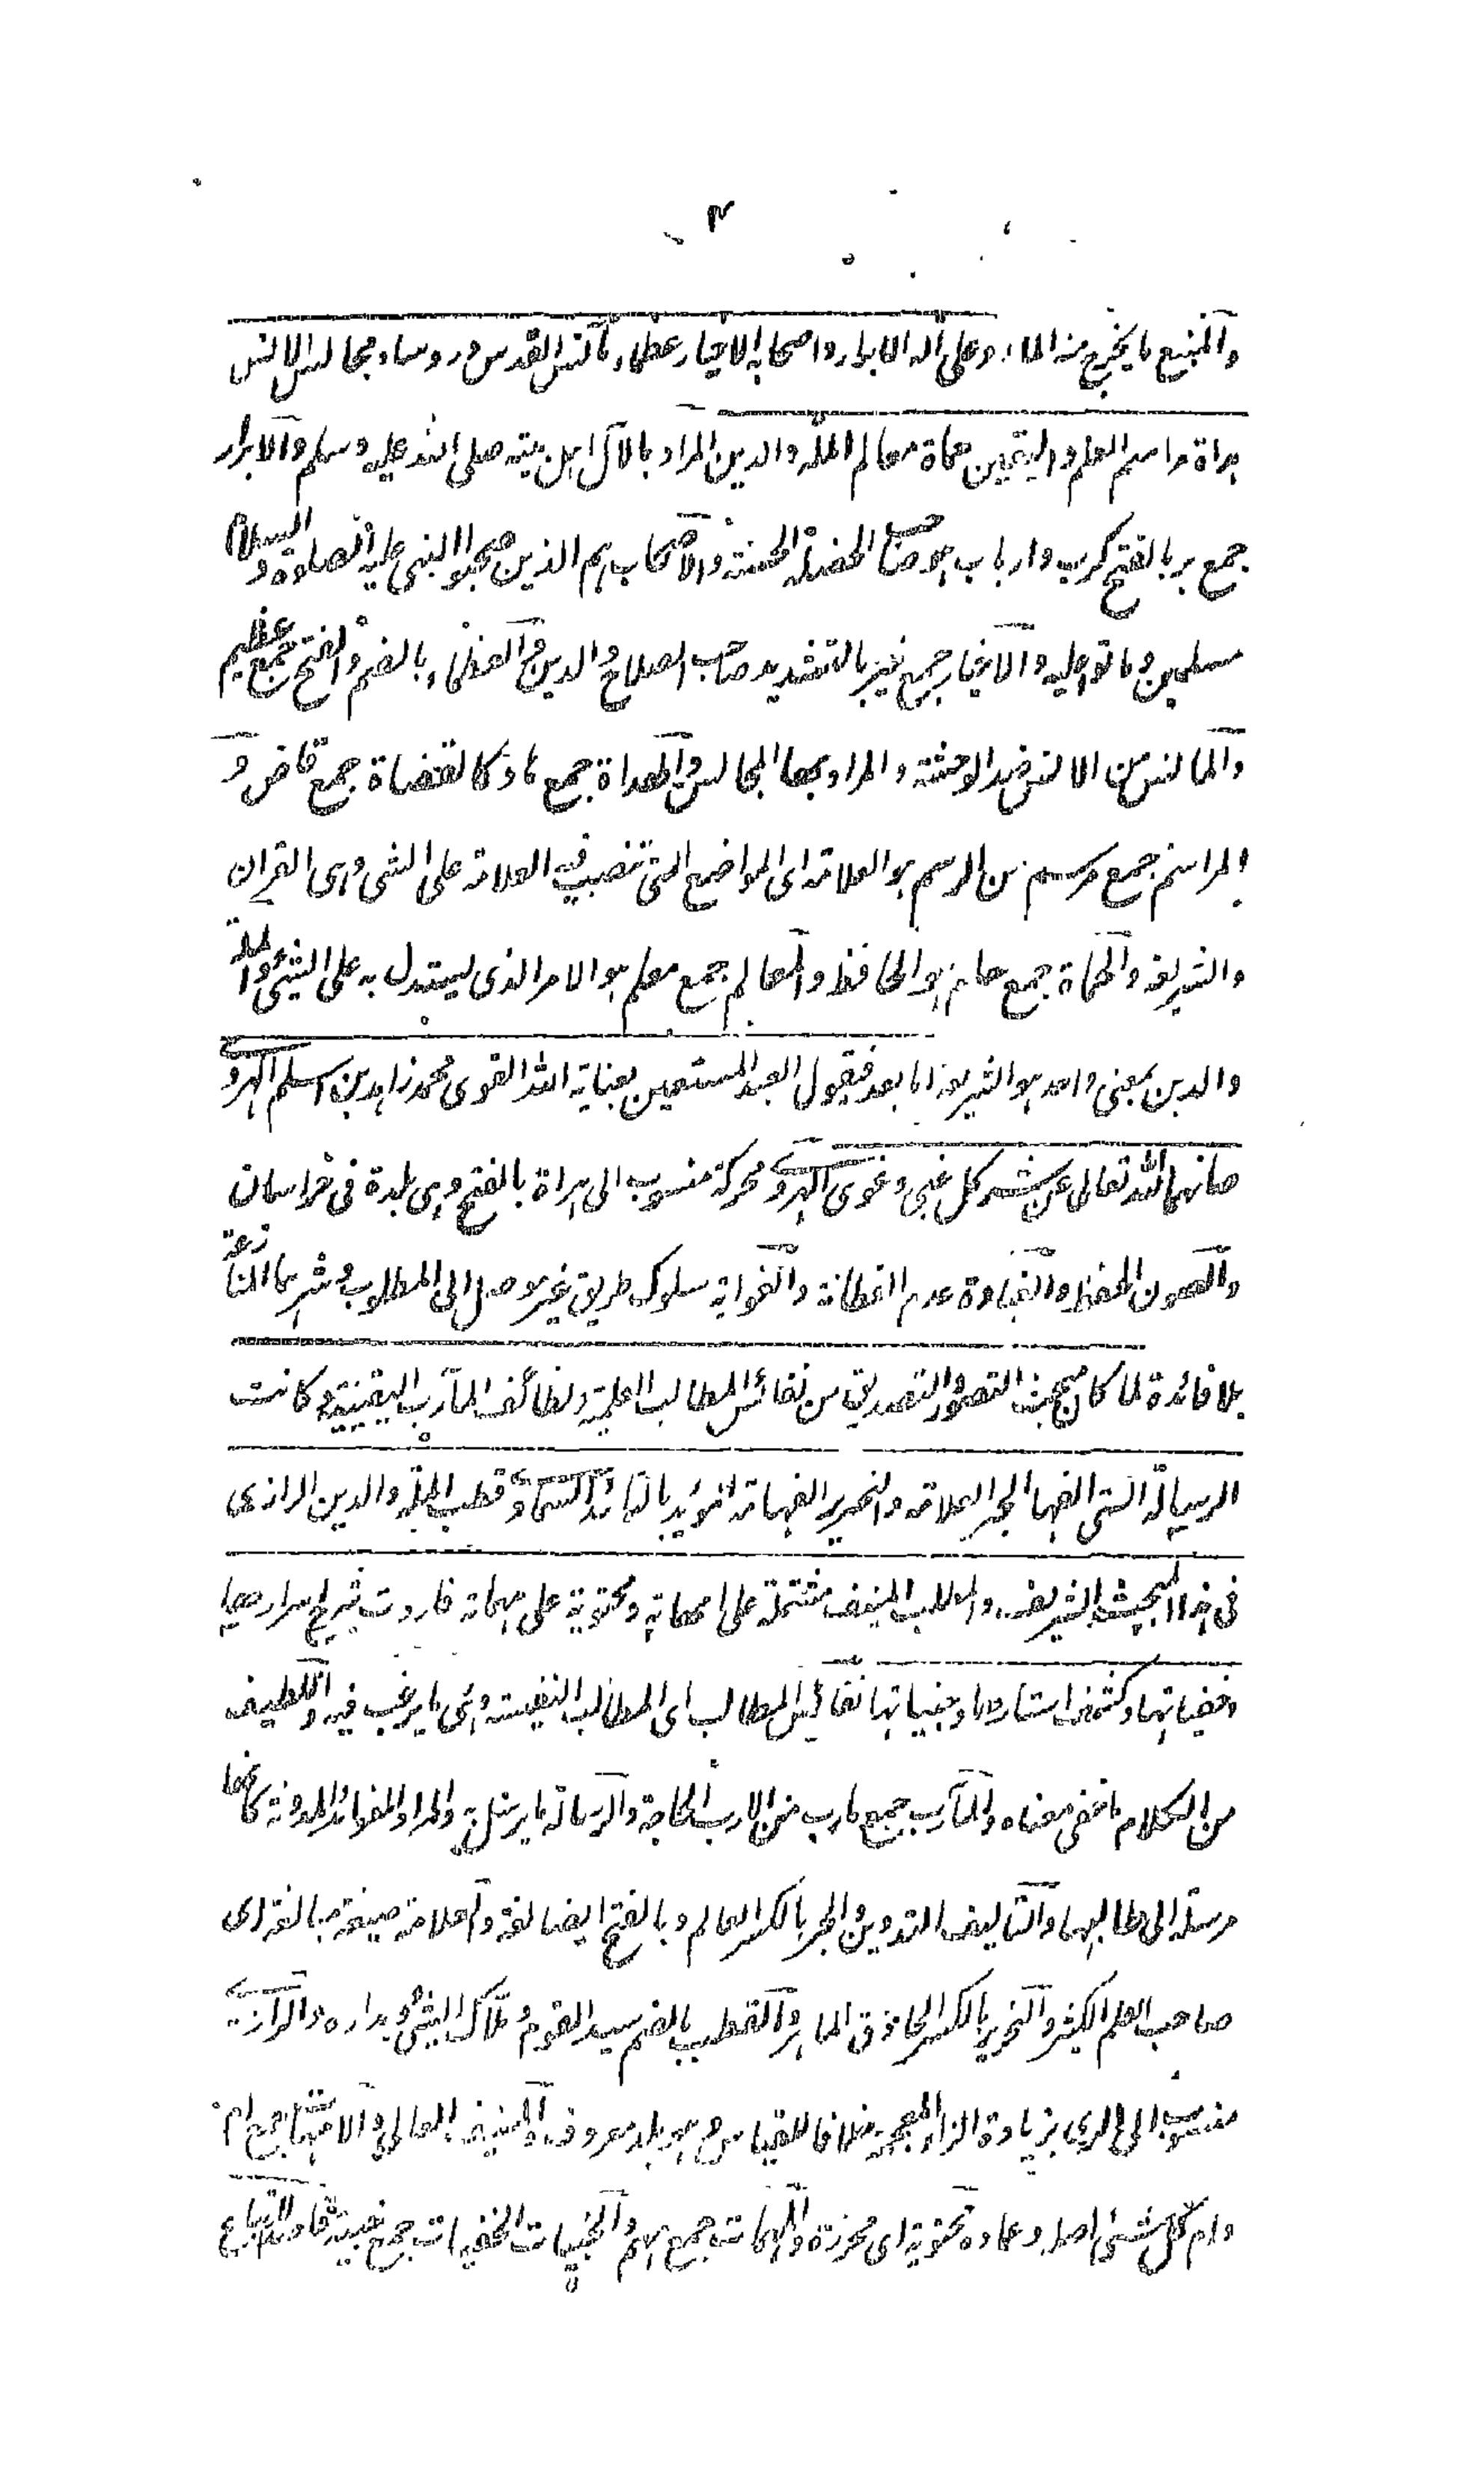 والمنبع ما يخرج منه الماء وعلى آله الابرار واصحابه الاخيار عظماء مآنس القدس ورؤساء مجالس الانس
هداة مراسم العلم واليقين حماة معالم الملة والدين المراد بالآل اهل بيته صلى الله عليه وسلم والابرار
جمع بر بالفتح كرب وارباب هو صاحب الخصلة الحسنة والاصحاب هم الذين صحبوا النبى عليه الصلاة والسلام
مسلمين وماتوا عليه والاخيار جمع خير بالتشديد صاحب الصلاح والدين والعظماء بالضم والفتح جمع عظيم
والمآنس من الانس ضد الوحشة والمراد بها المجالس والهداة جمع هاد كالقضاة جمع قاض و
المراسم جمع مرسم من الرسم هو العلامة اى المواضع التى تنصب فيه العلامة على الشئ وهى القران
والشريعة والحماة جمع حام هو الحافظ والمعالم جمع معلم هو الامر الذى يستدل به على الشئ والملة
والدين بمعنى واحد هو الشريعة اما بعد فيقول العبد المستعين بعناية الله القوى محمد زاهد بن اسلم الهروى
صانهما الله تعالى عن شر كل غبى وغوى الهروى محركة منسوب الى هراة بالفتح وهى بلدة فى خراسان
والصون الحفظ والغباوة عدم الفطانة والغواية سلوك طريق غير موصل الى المطلوب وشرهما المنازعة
بلا فائدة لما كان مبحث التصور والتصديق من نفائس المطالب العلمية ولطائف المآرب اليقينية وكانت
الرسالة التى الفها الحبر العلامة والنحرير الفهامة المؤيد بالتائيد السماوى قطب الملة والدين الرازى
فى هذا المبحث الشريف والمطلب المنيف مشتملة على امهاته ومحتوية على مهماته فاردت شرح اسرارها
وخفياتها وكشف استارها وخبياتها نفائس المطالب اى المطالب النفيسة وهى ما يرغب فيه واللطيف
من الكلام ما خفى معناه والمآرب جمع مارب من الارب الحاجة والرسالة ما يرسل به والمراد الفوائد المدونة كانها
مرسلة الى طالبها والتاليف التدوين والحبر بالكسر العالم وبالفتح ايضا لغة والعلامة صيغة مبالغة اى
صاحب العلم الكثير والنحرير بالكسر الحاذق الماهر والقطب بالضم سيد القوم وملاك الشئ ومداره والرازى
منسوب الى الرى بزيادة الزاء المعجمة خلافا للقياس وهو بلد معروف والمنيف العالى والامهات جمع ام
وام كل شئ اصله وعماده محتوية اى محرزة والمهمات جمع مهم والخبيات الخفيات جمع خبية